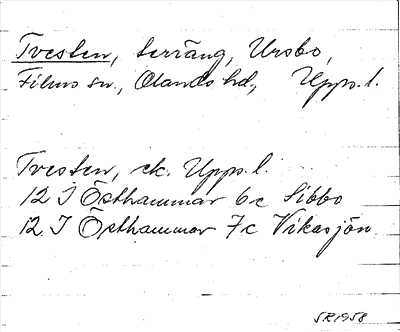 Tvesten, terräng, Ursbo,
Films sn., Olands hd., Upps. l.
Tvesten, ek. Upps. l.
12 I Östhammar 6c Sibbo
12 I Östhammar 7c Vikasjön
SR 1958